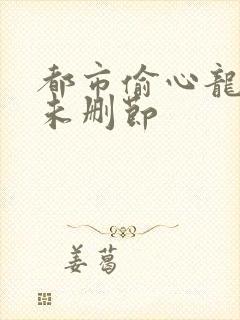 都市偷心龍
未删節
姜葛